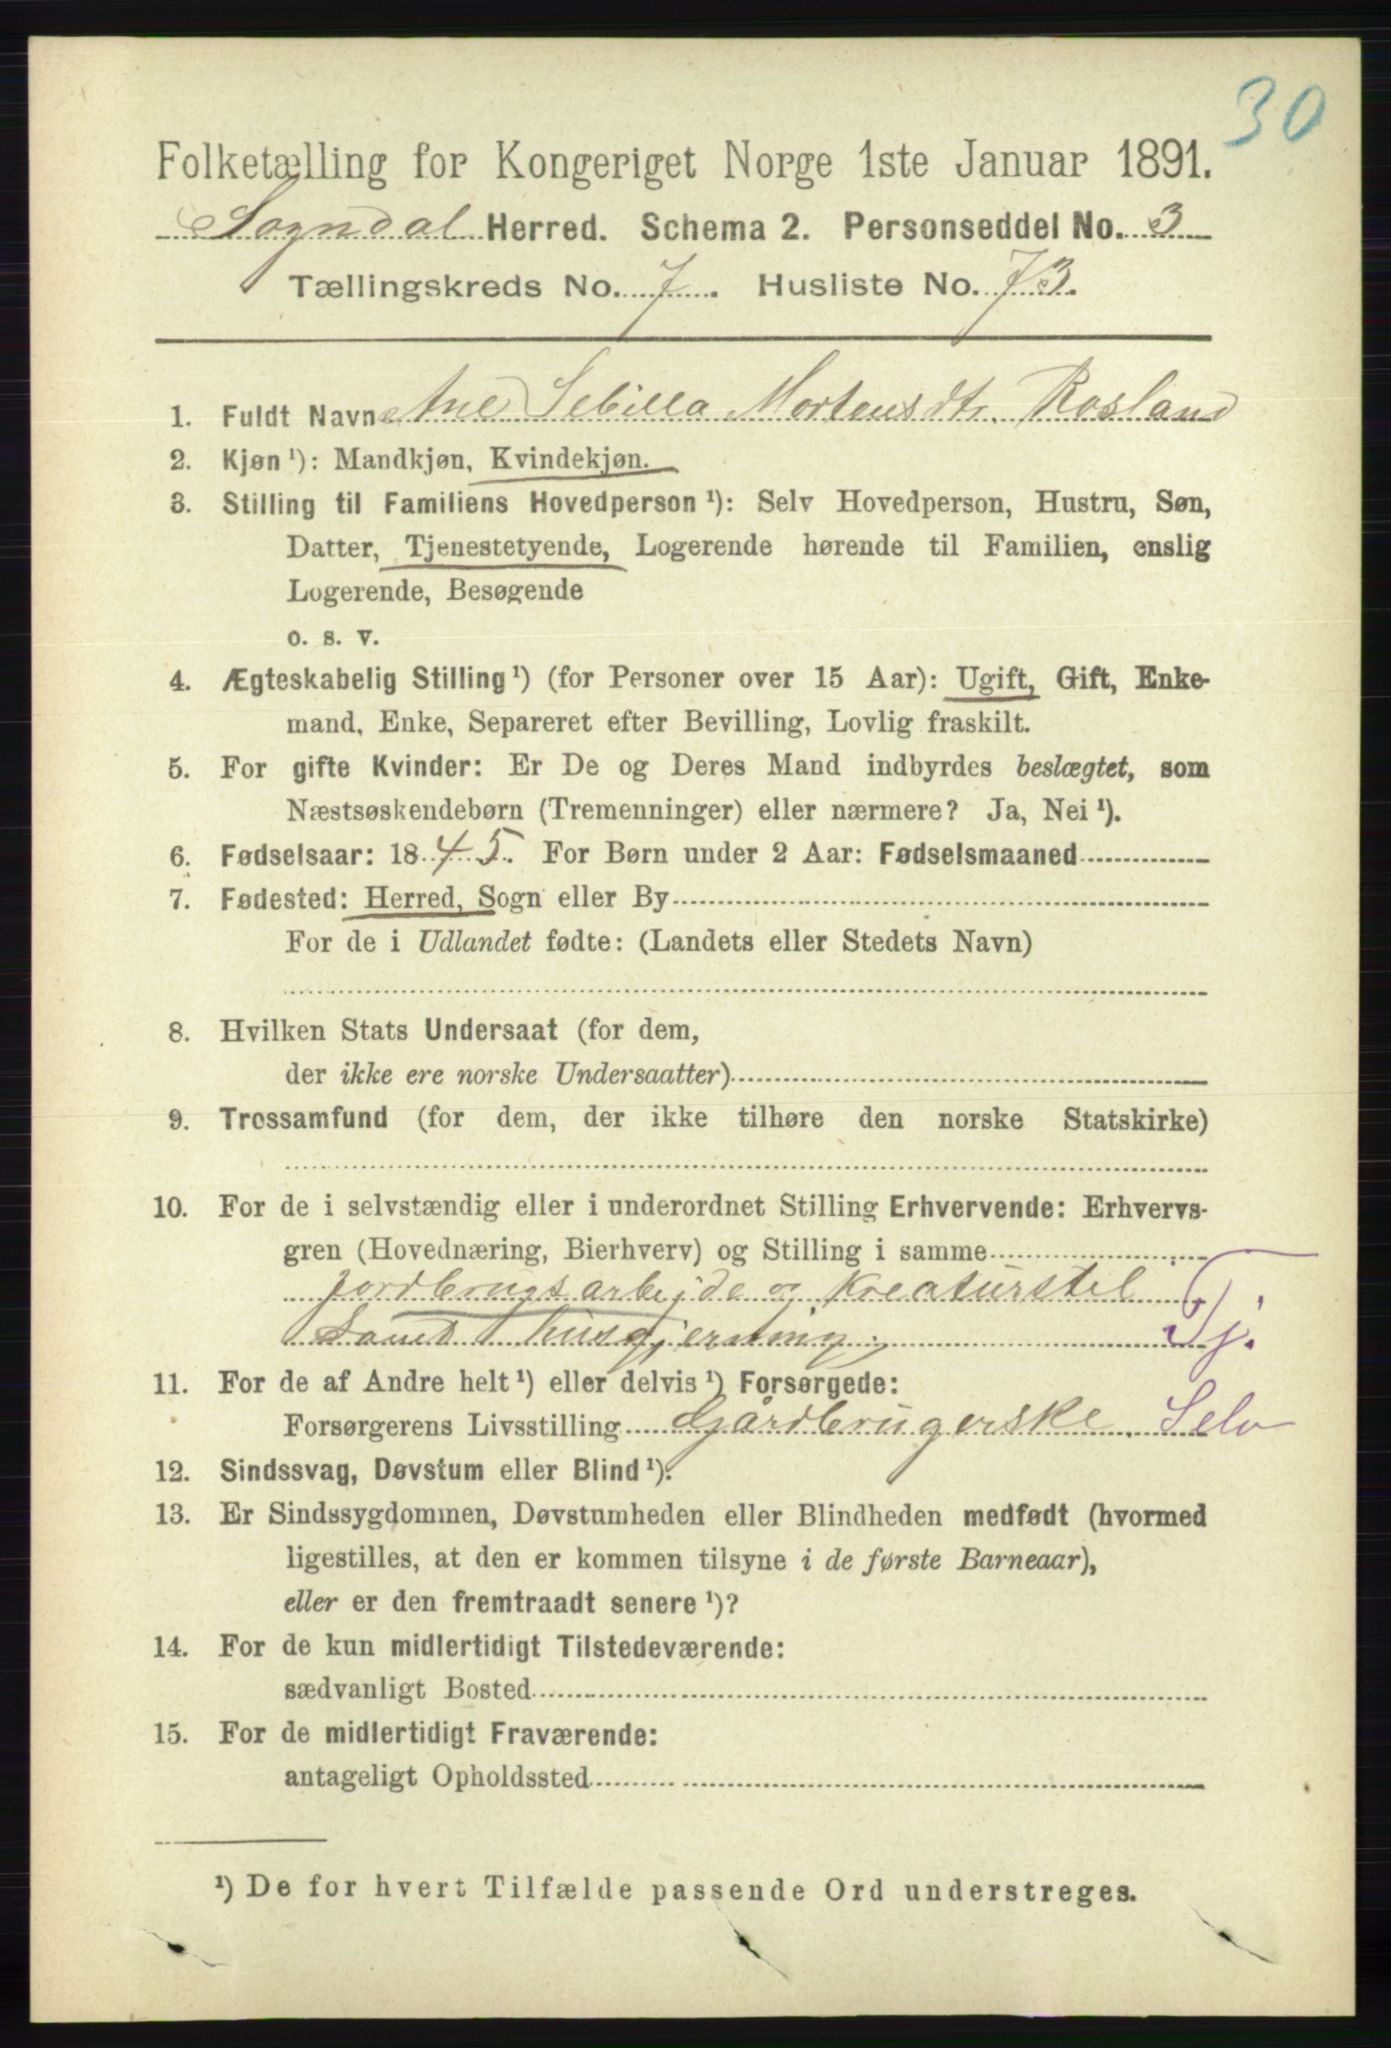 30
Folketælling for Kongeriget Norge 1ste Januar 1891.
Sogndal Herred. Schema 2. Personseddel No. 3
Tællingskreds No. 7. Husliste No. 73.
1. Fuldt Navn Ane Sebilla Mortensdtr. Rosland
2. Kjøn ¹): Mandkjøn, Kvindekjøn.
3. Stilling til Familiens Hovedperson ¹): Selv Hovedperson, Hustru, Søn,
Datter, Tjenestetyende, Logerende hørende til Familien, enslig
Logerende, Besøgende
o. s. v.
4. Ægteskabelig Stilling ¹) (for Personer over 15 Aar): Ugift, Gift, Enke-
mand, Enke, Separeret efter Bevilling, Lovlig fraskilt.
5. For gifte Kvinder: Er De og Deres Mand indbyrdes beslægtet, som
Næstsøskendebørn (Tremenninger) eller nærmere? Ja, Nei ¹).
6. Fødselsaar: 1845. For Børn under 2 Aar: Fødselsmaaned
7. Fødested: Herred, Sogn eller By
For de i Udlandet fødte: (Landets eller Stedets Navn)
8. Hvilken Stats Undersaat (for dem,
der ikke ere norske Undersaatter)
9. Trossamfund (for dem, der ikke tilhøre den norske Statskirke)
10. For de i selvstændig eller i underordnet Stilling Erhvervende: Erhvervs-
gren (Hovednæring, Bierhverv) og Stilling i samme
Jordbrugsarbejde og Kreaturstel
Samt husgjerning. Tj.
11. For de af Andre helt ¹) eller delvis ¹) Forsørgede:
Forsørgerens Livsstilling Gårdbrugerske. Selv
12. Sindssvag, Døvstum eller Blind ¹).
13. Er Sindssygdommen, Døvstumheden eller Blindheden medfødt (hvormed
ligestilles, at den er kommen tilsyne i de første Barneaar),
eller er den fremtraadt senere ¹)?
14. For de kun midlertidigt Tilstedeværende:
sædvanligt Bosted
15. For de midlertidigt Fraværende:
antageligt Opholdssted
¹) De for hvert Tilfælde passende Ord understreges.